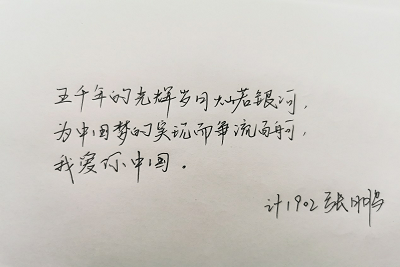 五千年的光辉岁月灿若银河，
为中国梦的实现而争流百舸，
我爱你中国。
计1902张鹏